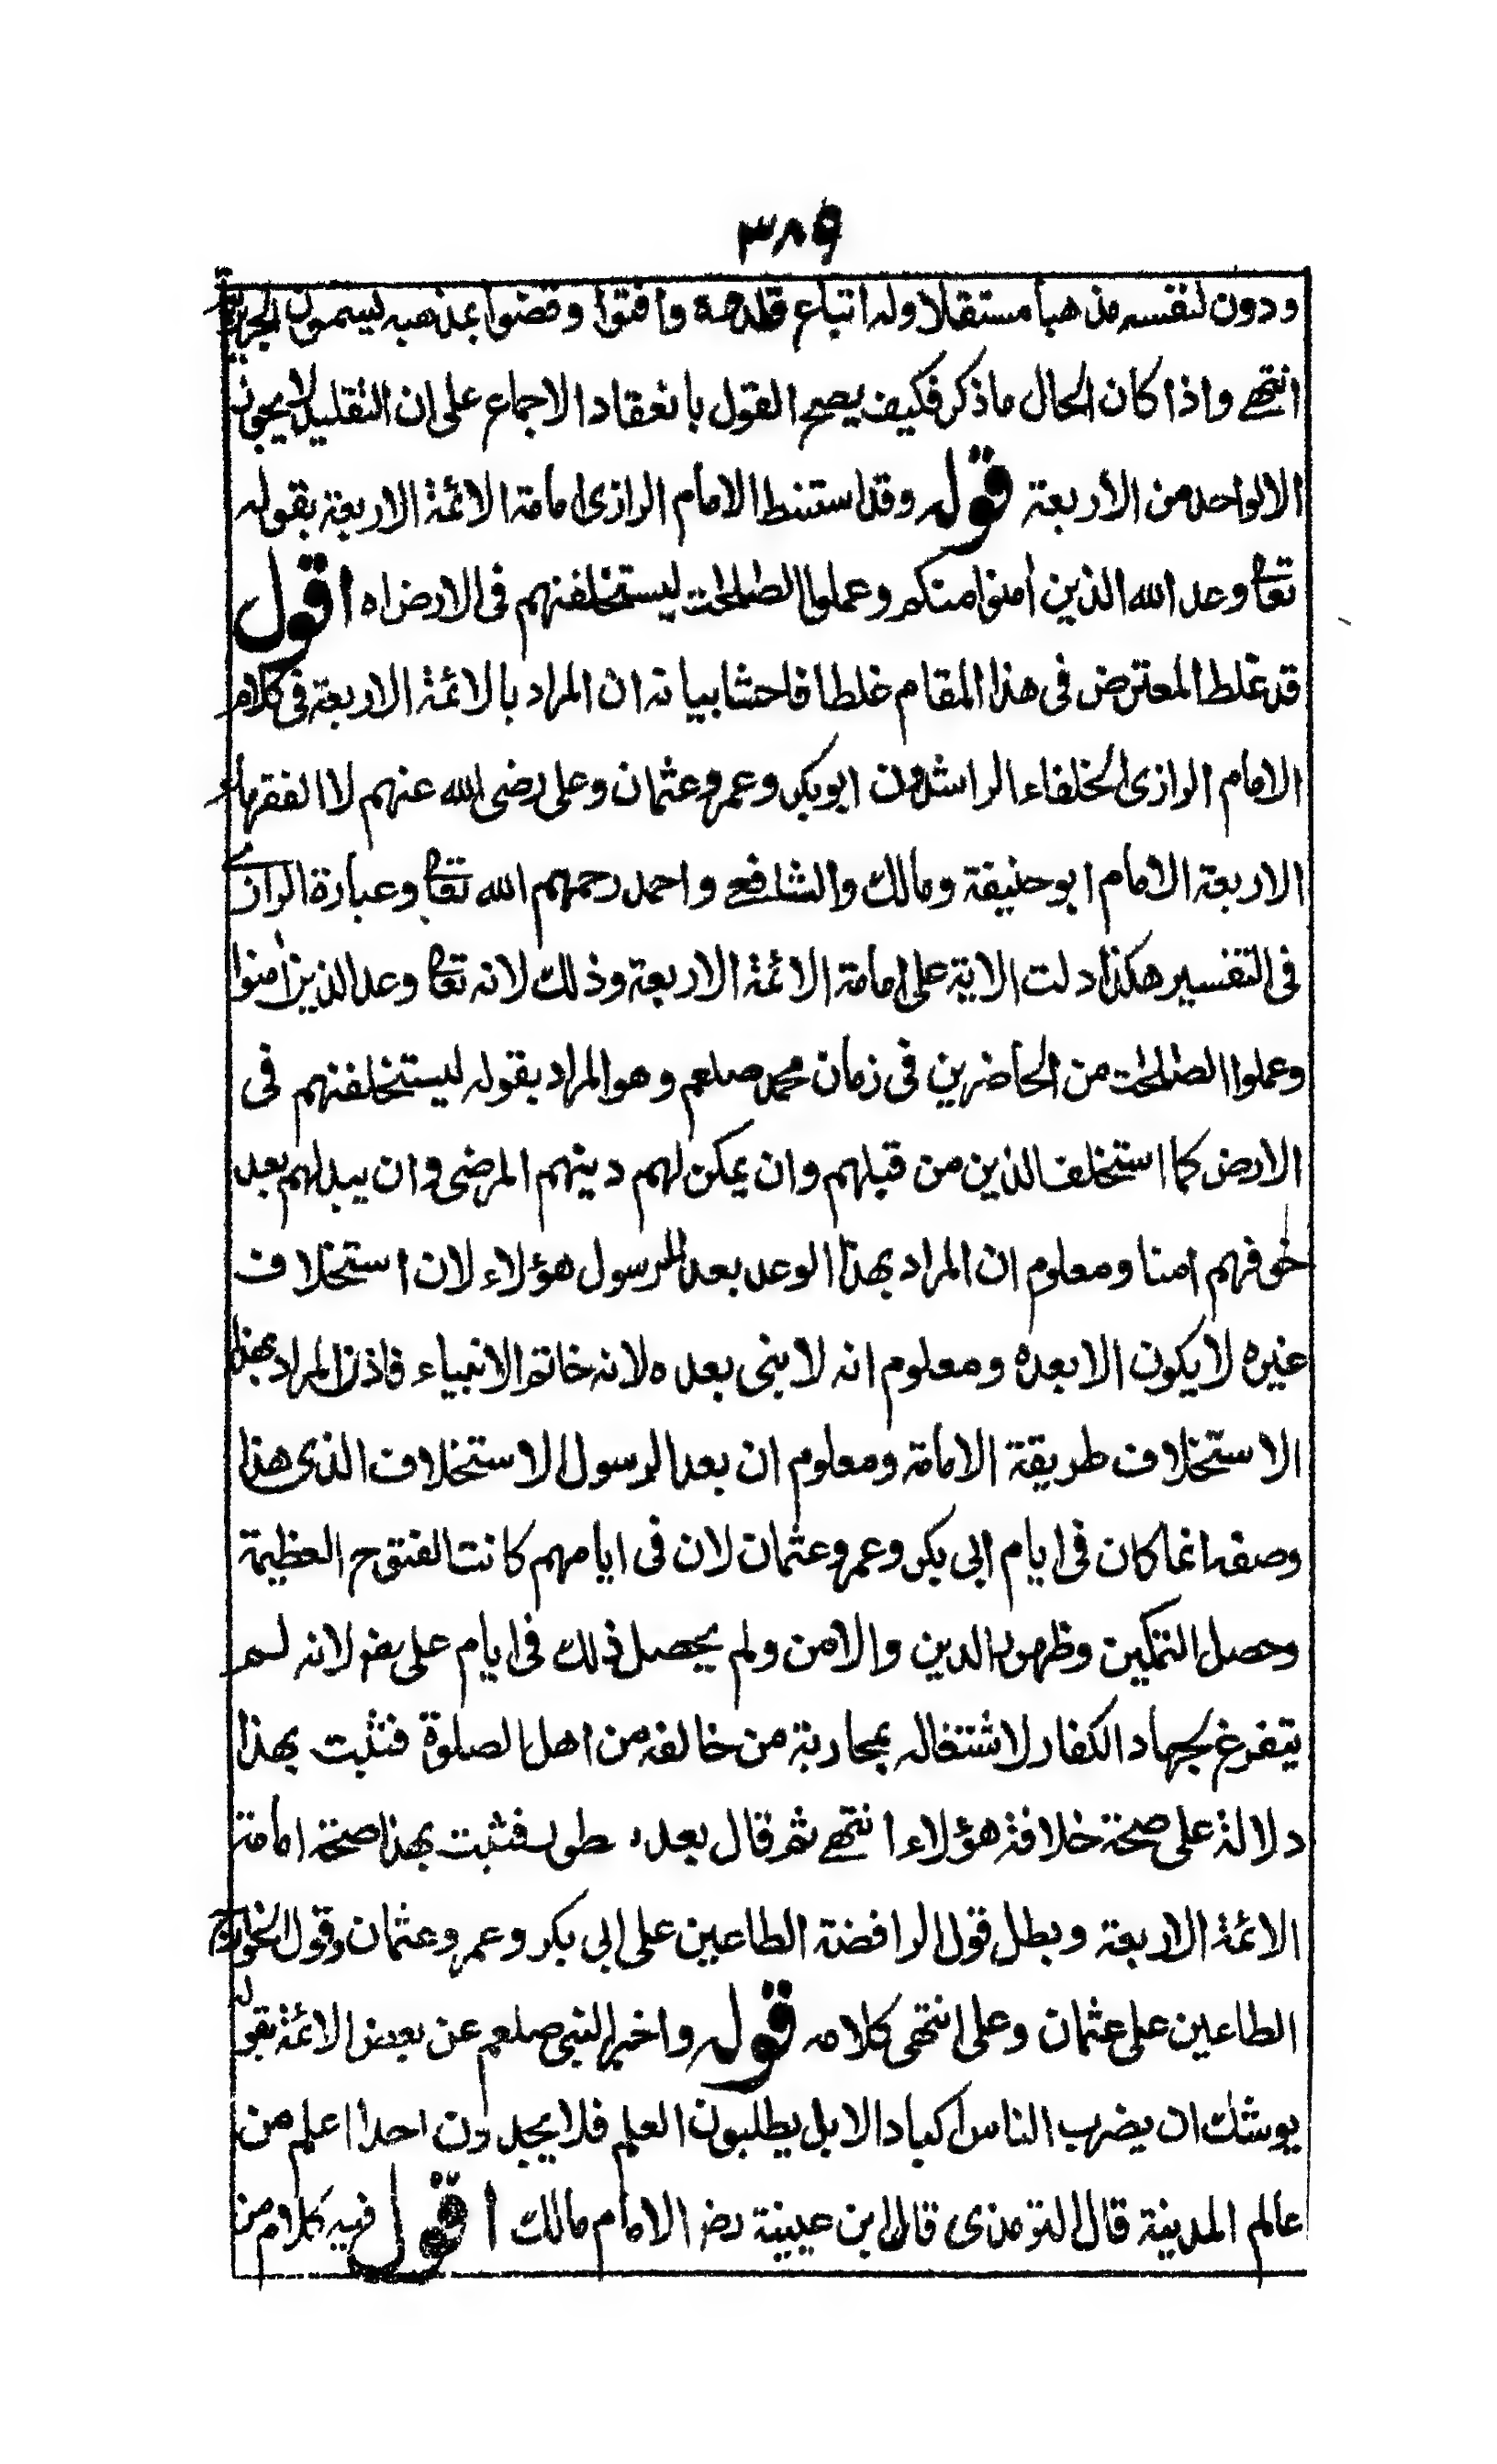 ٣٨٩
ودون لنفسه مذهبا مستقلا وله اتباع قلدوه وافتوا وقضوا بمذهبه ليسمون الجريرية
انتهى واذا كان الحال ما ذكر فكيف يصح القول بانعقاد الاجماع على ان التقليد لا يجوز
الا لواحد من الأربعة قوله وقد استنبط الامام الرازى امامة الائمة الاربعة بقوله
تعالى وعد الله الذين أمنوا منكم وعملوا الصلحت ليستخلفنهم فى الارض اه اقول
قد غلط المعترض فى هذا المقام غلطا فاحشا بيانه ان المراد بالائمة الاربعة فى كلام
الامام الرازى الخلفاء الراشدون ابو بكر وعمر وعثمان وعلى رضى الله عنهم لا الفقهاء
الاربعة الامام ابو حنيفة ومالك والشافعى واحمد رحمهم الله تعالى وعبارة الرازى
فى التفسير هكذا دلت الاية على امامة الائمة الاربعة وذلك لانه تعالى وعد الذين أمنوا
وعملوا الصلحت من الحاضرين فى زمان محمد صلعم وهو المراد بقوله ليستخلفنهم فى
الارض كما استخلف الذين من قبلهم وان يمكن لهم دينهم المرضى وان يبدلهم بعد
خوفهم امنا ومعلوم ان المراد بهذا الوعد بعد الرسول هؤلاء لان استخلاف
غيره لا يكون الا بعده ومعلوم انه لا نبى بعده لانه خاتم الانبياء فاذن المراد بهذا
الاستخلاف طريقة الامامة ومعلوم ان بعد الرسول الاستخلاف الذى هذا
وصفه انما كان فى ايام ابى بكر وعمر وعثمان لان فى ايامهم كانت الفتوح العظيمة
وحصل التمكين وظهور الدين والامن ولم يحصل ذلك فى ايام على رضـ لانه لم
يتفرغ لجهاد الكفار لاشتغاله بمحاربة من خالفه من اهل الصلوة فثبت بهذا
دلالة على صحة خلافة هؤلاء انتهى ثم قال بعد طول فثبت بهذا صحة امامة
الائمة الاربعة وبطل قول الرافضة الطاعنين على ابى بكر وعمر وعثمان وقول الخوارج
الطاعنين على عثمان وعلى انتهى كلامه قوله واخبر النبى صلعم عن بعض الائمة بقوله
يوشك ان يضرب الناس اكباد الابل يطلبون العلم فلا يجدون احدا اعلم من
عالم المدينة قال الترمذى قال ابن عيينة رضـ الامام مالك أقول فيه كلام من